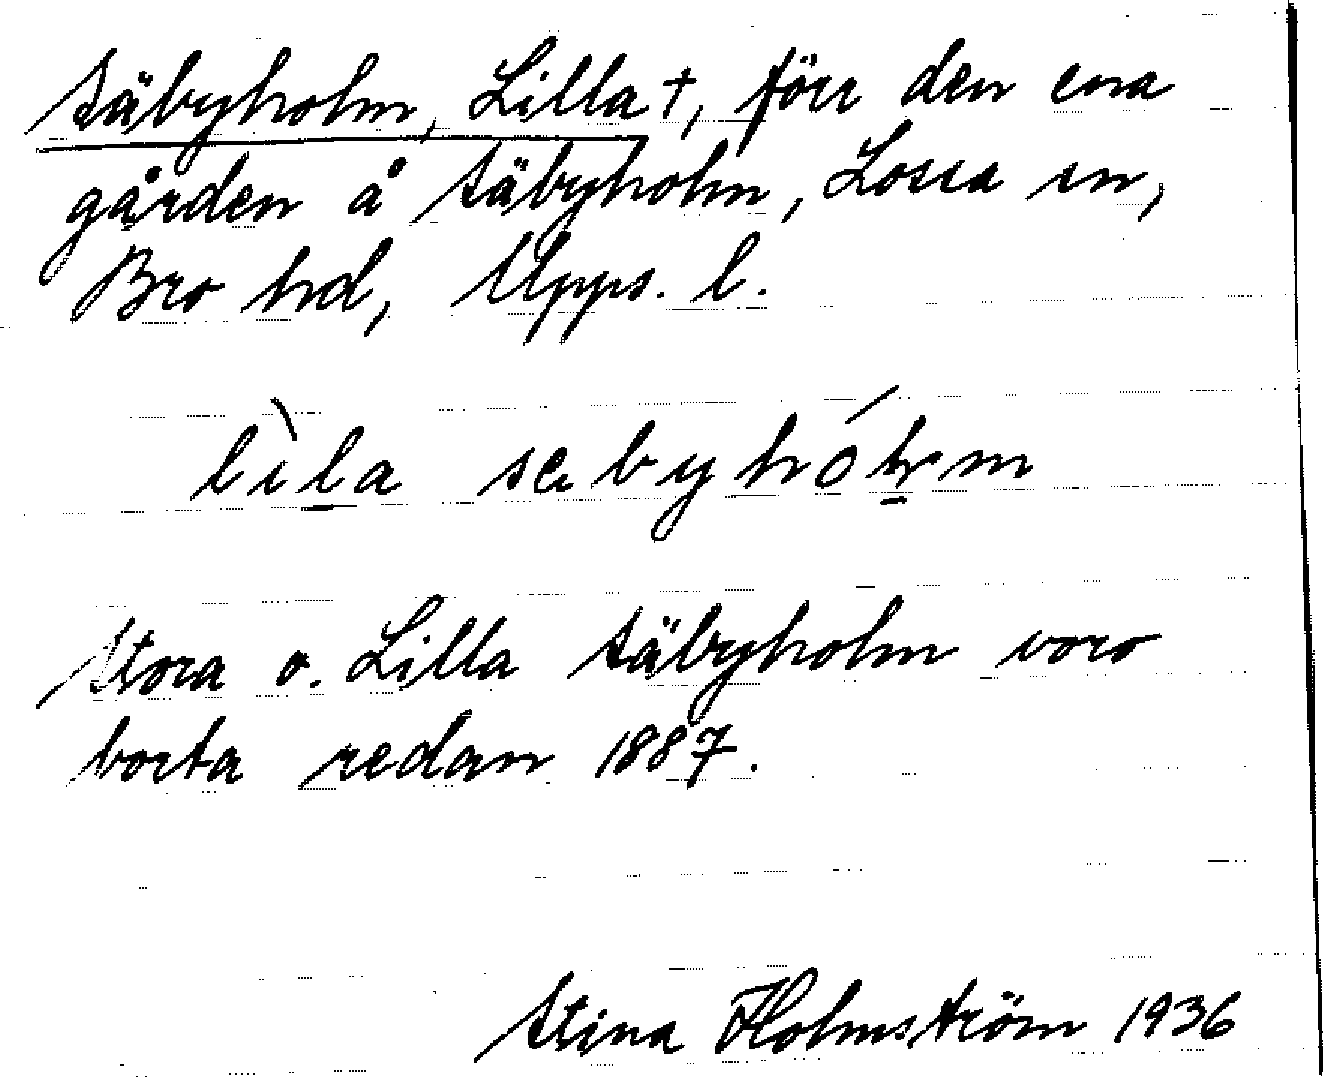 Säbyholm, Lilla †, förr den ena
gården å Säbyholm, Lossa sn,
Bro hd, Upps. l.
lìla sebyhólm
Stora o. Lilla Säbyholm voro
borta redan 1887.
Stina Holmström 1936